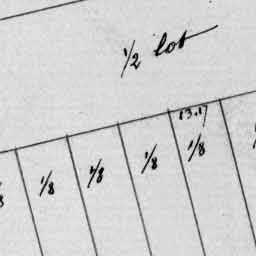 1/2 lot
13.17
1/8 1/8 1/8 1/8